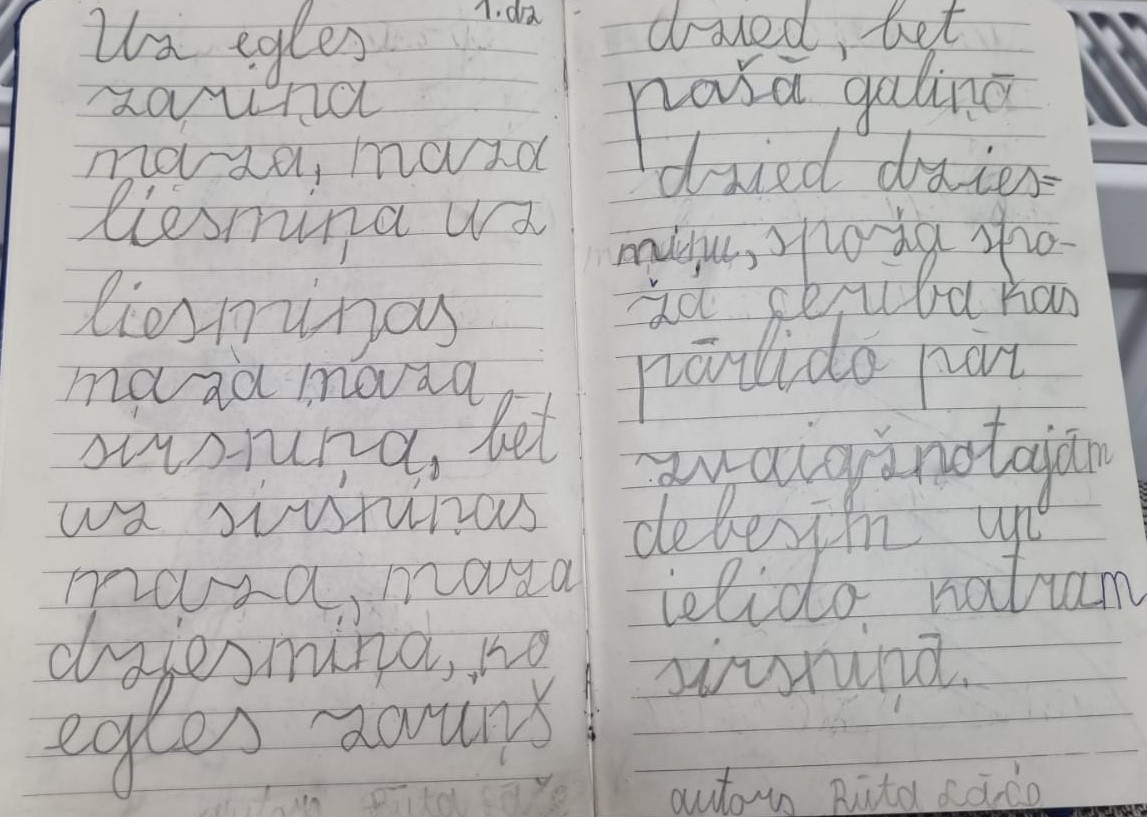 1.dz
Uz egles
zariņa
maza, maza
liesmiņa uz
liesmiņas
maza maza
sirsniņa, bet
uz sirsniņas
maza, maza
dziesmiņa, ko
egles zariņš
dzied, bet
pašā galiņā
dzied dzies=
miņu, spoža spo-
ža cerība kas
pārlido pār
zvaigžnotajām
debesīm un
ielido katram
sirsniņā.
autors Rūta